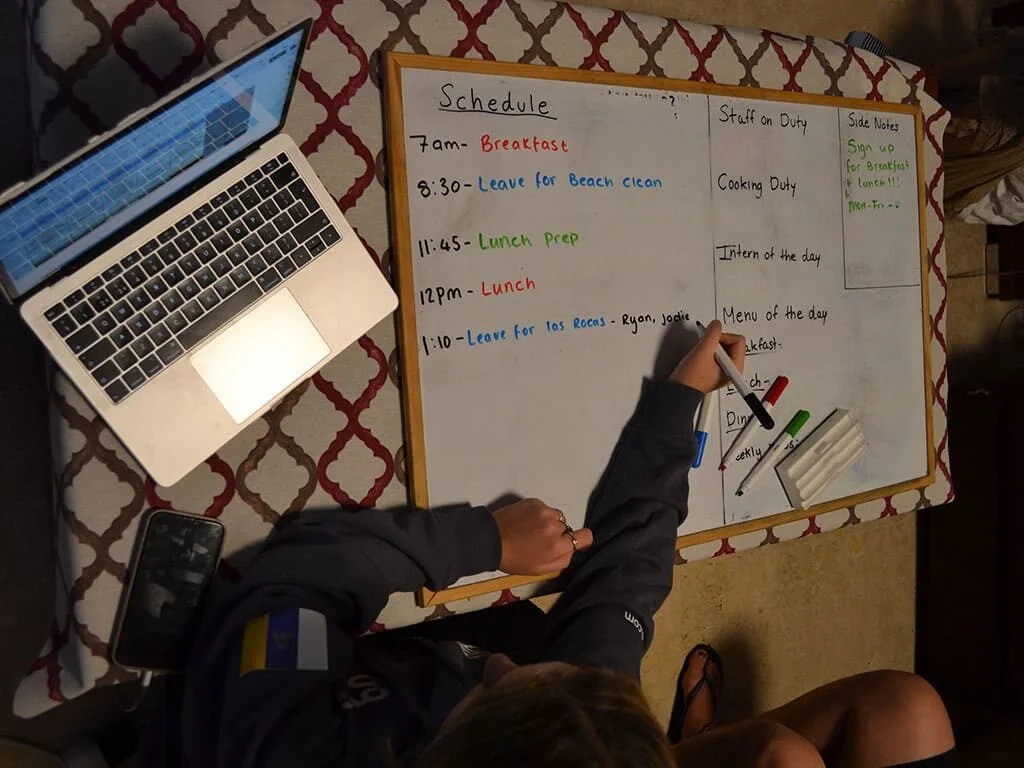 Schedule
7am- Breakfast
8:30- Leave for Beach clean
11:45- Lunch Prep
12pm- Lunch
1:10- Leave for las Rocas - Ryan, Jodie
Staff on Duty
Cooking Duty
Intern of the day
Menu of the day
Side Notes
Sign up
for Breakfast
+ lunch!!!
Mon-Fri
.com